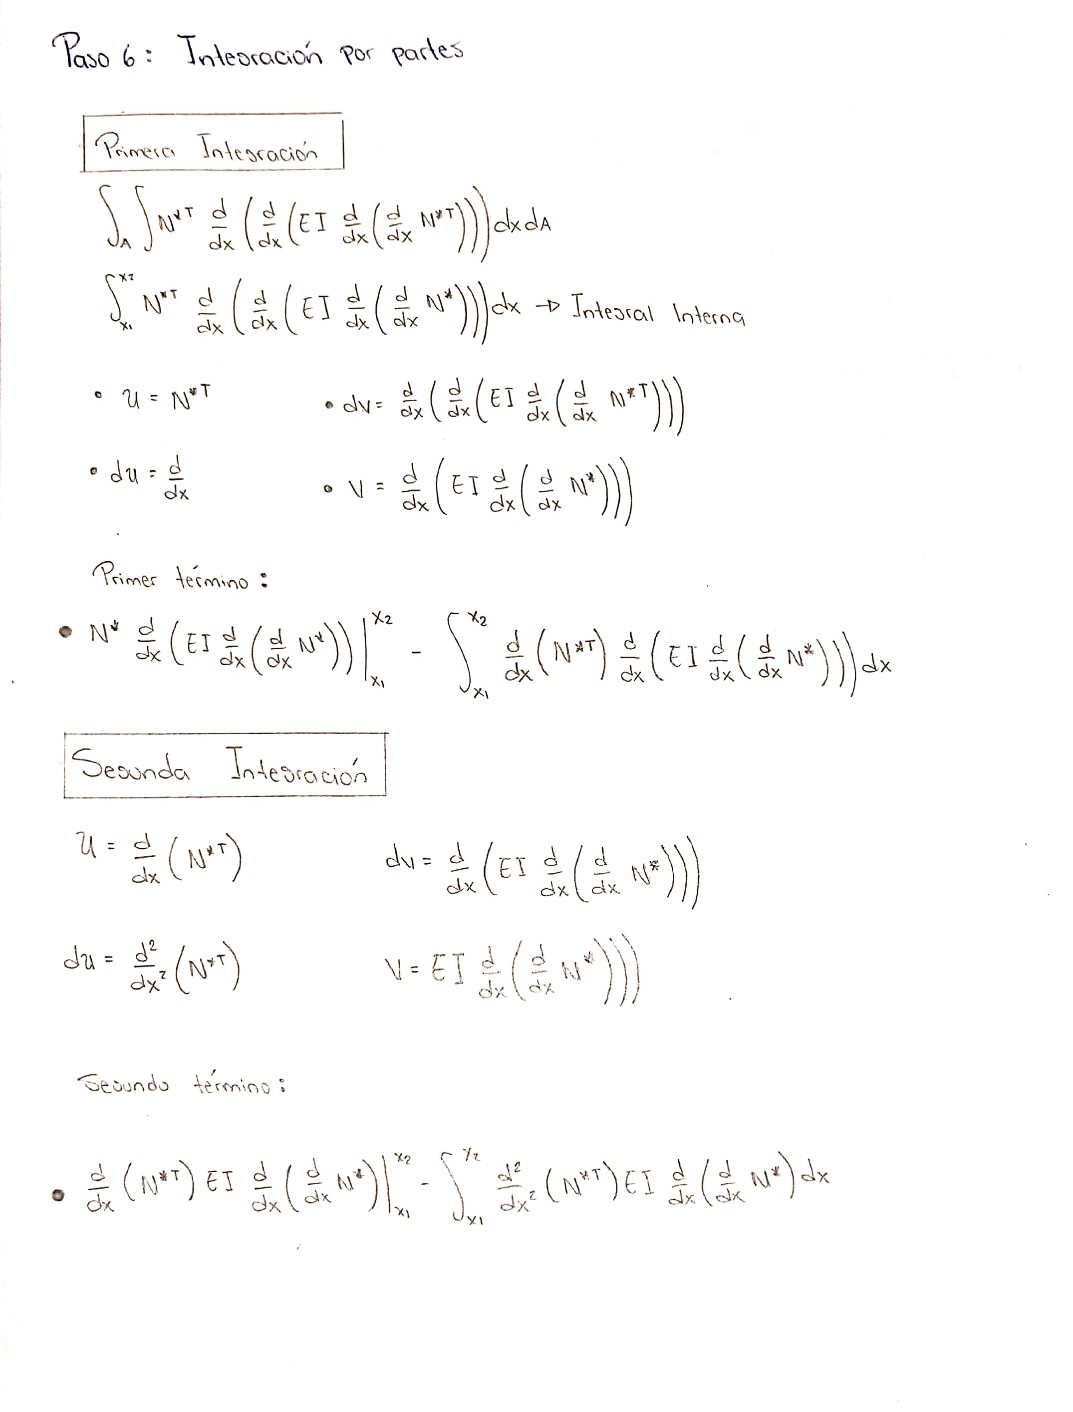 Paso 6: Integración por partes
Primera Integración
∫_A ∫ N*ᵀ d/dx (d/dx (EI d/dx (d/dx N*ᵀ))) dx dA
∫_x₁^x₂ N*ᵀ d/dx (d/dx (EI d/dx (d/dx N*))) dx → Integral Interna
• u = N*ᵀ • dv = d/dx (d/dx (EI d/dx (d/dx N*ᵀ)))
• du = d/dx • V = d/dx (EI d/dx (d/dx N*)))
Primer término:
• N* d/dx (EI d/dx (d/dx N*)) |_x₁^x₂ - ∫_x₁^x₂ d/dx (N*ᵀ) d/dx (EI d/dx (d/dx N*))) dx
Segunda Integración
u = d/dx (N*ᵀ) dv = d/dx (EI d/dx (d/dx N*)))
du = d²/dx² (N*ᵀ) V = EI d/dx (d/dx N*)))
Segundo término:
• d/dx (N*ᵀ) EI d/dx (d/dx N*) |_x₁^x₂ - ∫_x₁^x₂ d²/dx² (N*ᵀ) EI d/dx (d/dx N*) dx